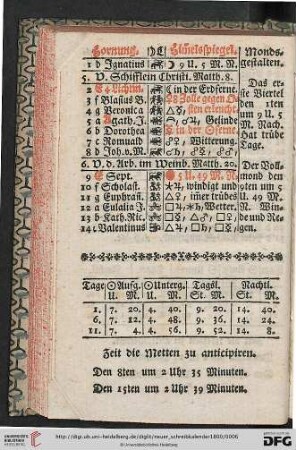 Hornung. Himelsspiegel. Monds-
1 d Ignatius ☽ 9 U. 5 M. N. gestalten.
5. V. Schifflein Christi. Matth. 8.
in der Erdferne. Das er-
3 f Blasius B. ste Viertel
4 g Veronica den 1ten
5 a Agath. J. Gesinde um 9 U. 5
6 b Dorothea in der M. Nach.
7 c Romuald Witterung. hat trübe
8 d Joh. v. M. Tage.
6. V. d. Arb. im Weinb. Matth. 20. Der Voll-
9 Sept. 5 U. 49 M. N. mond den
10 f Scholast. windigt und 9ten um 5
11 g Euphras. imer trübes U. 49 M.
12 a Eulalia J. Wetter. N. Win-
13 b Kath. Ric. de und Re-
14 c Valentinus gen.
Tage ☉Aufg. ☉Unterg. Tagsl. Nachtl.
U. M. U. M. St. M. St. M.
1. 7. 20. 4. 40. 9. 20. 14. 40.
6. 7. 12. 4. 48. 9. 36. 14. 24.
11. 7. 4. 4. 56. 9. 52. 14. 8.
Zeit die Metten zu anticipiren.
Den 8ten um 2 Uhr 35 Minuten.
Den 15ten um 2 Uhr 39 Minuten.
http://digi.ub.uni-heidelberg.de/diglit/neuer_schreibkalender1800/0006
© Universitätsbibliothek Heidelberg
UNIVERSITÄTS-
BIBLIOTHEK
HEIDELBERG
gefördert durch die
DFG